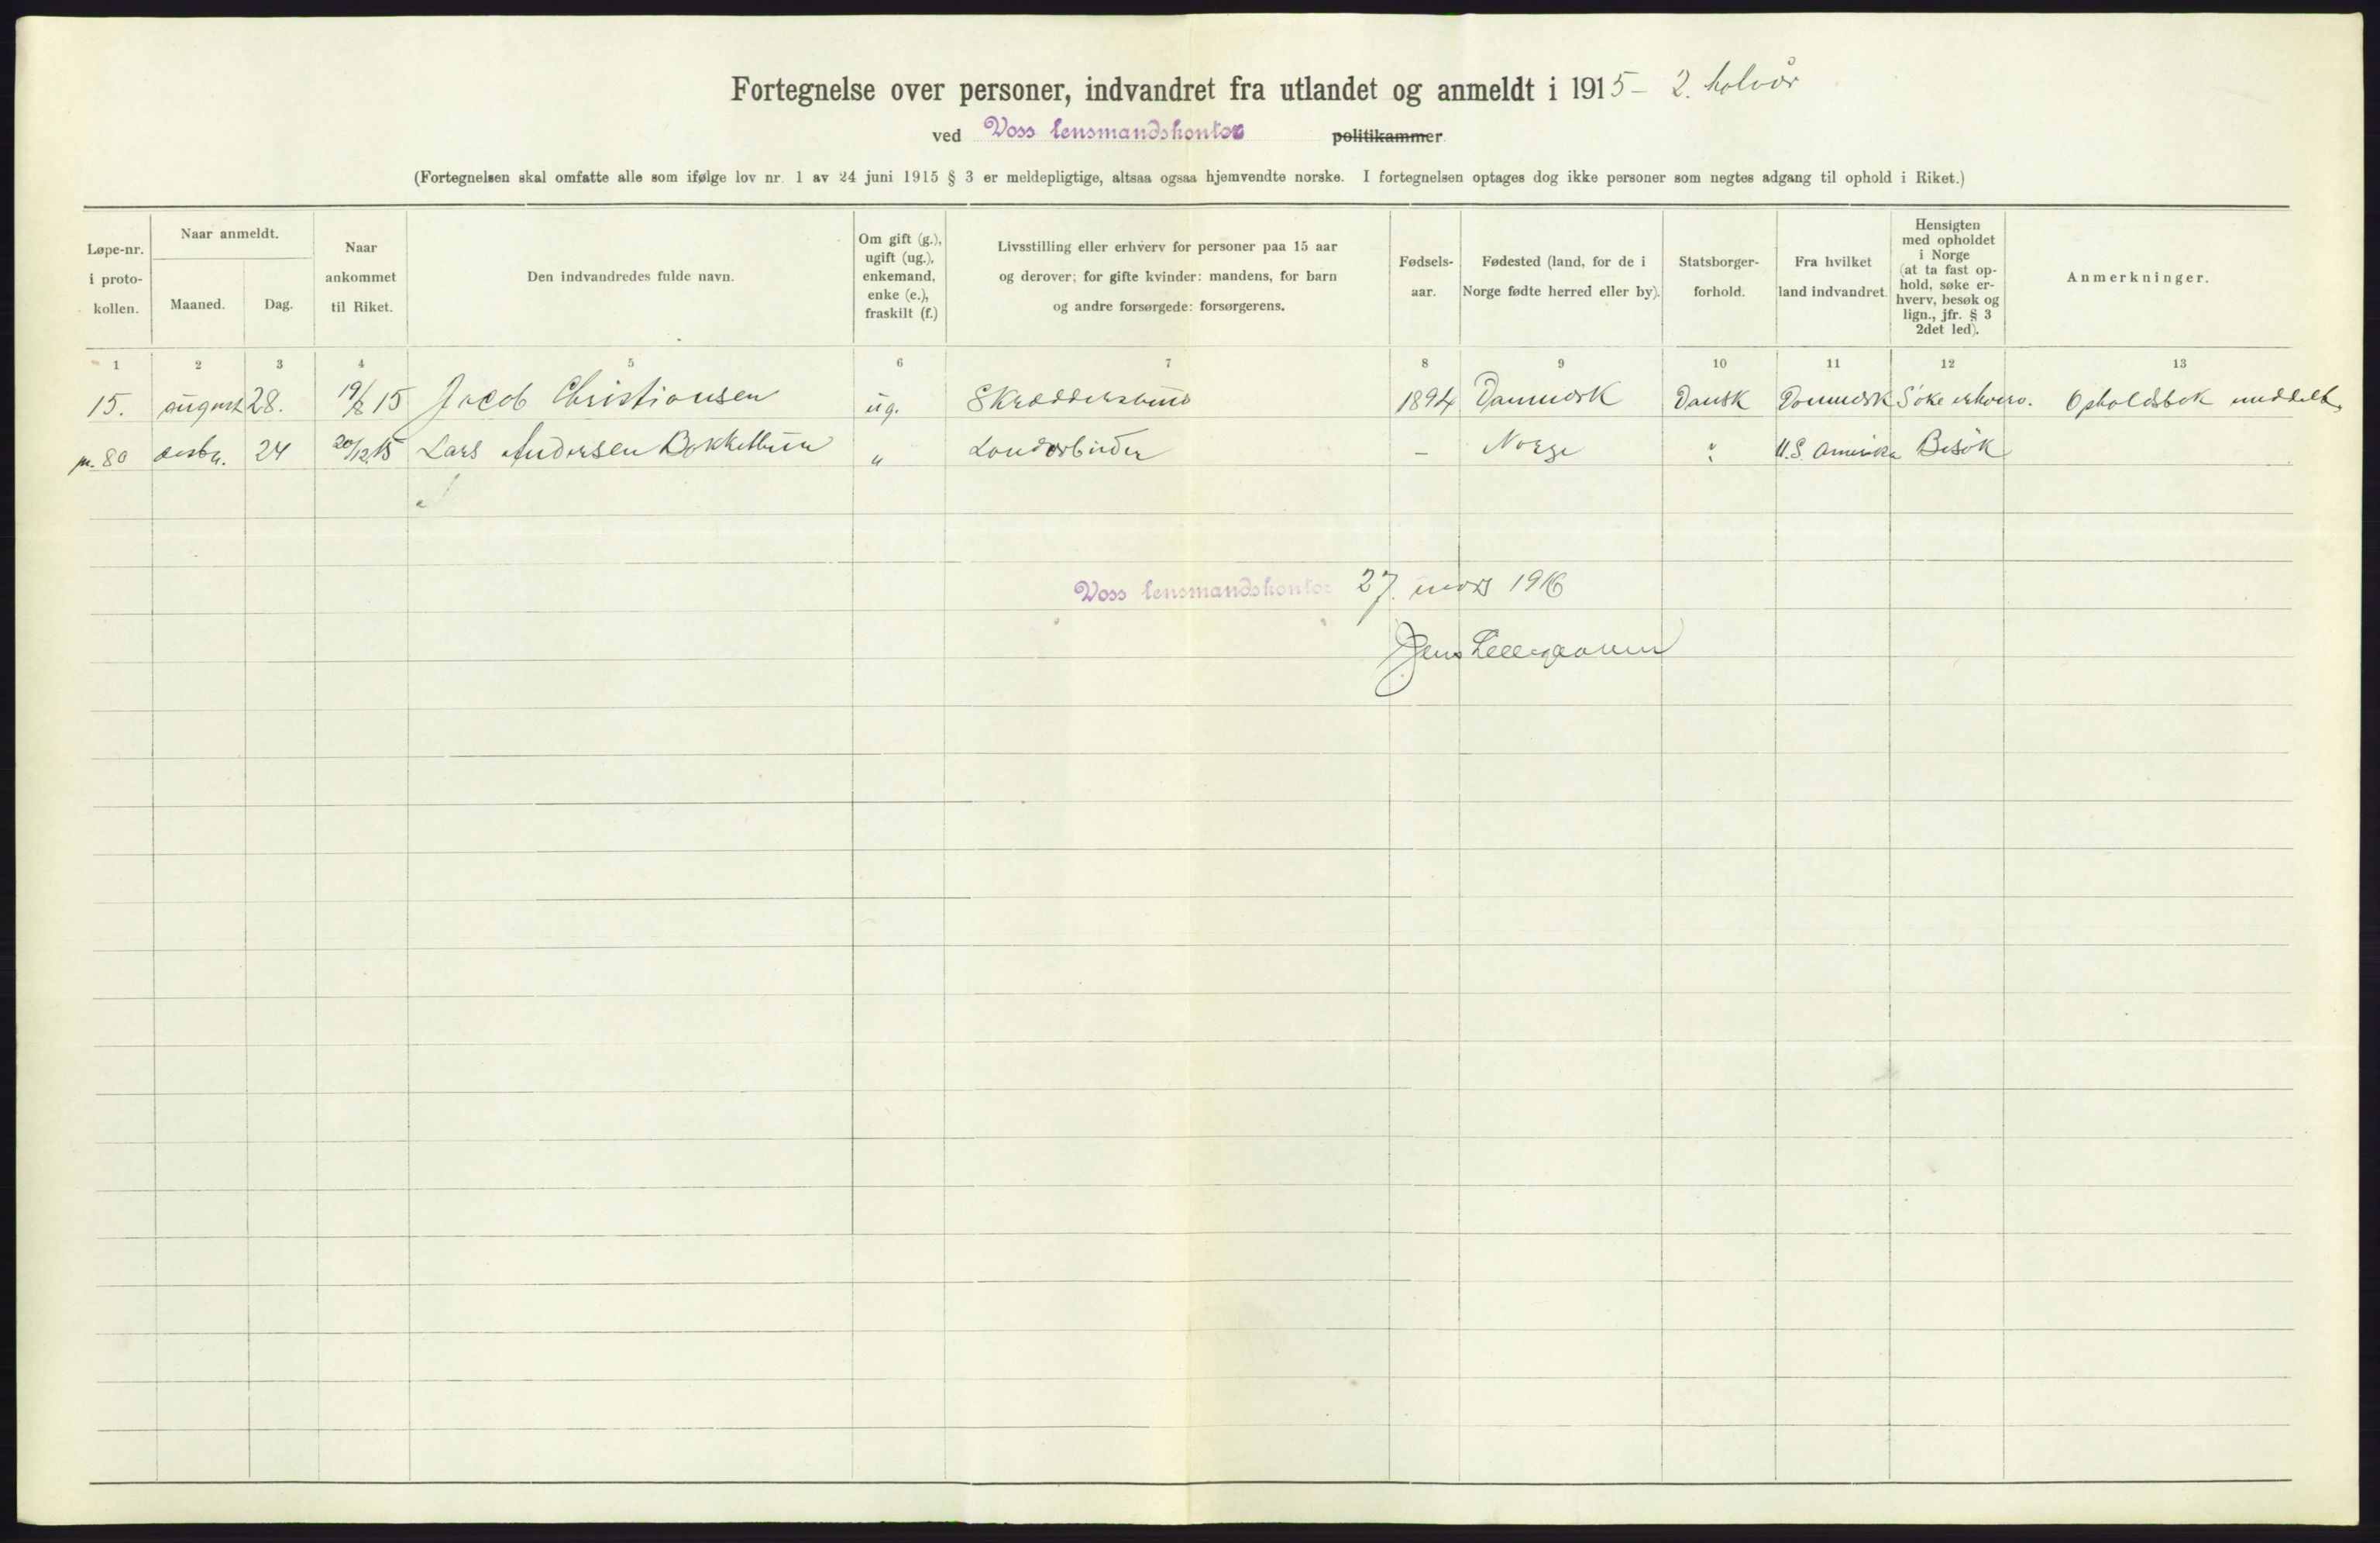 Fortegnelse over personer, indvandret fra utlandet og anmeldt i 1915 – 2. halvår
ved Voss lensmandskontor politikammer
(Fortegnelsen skal omfatte alle som ifølge lov nr. 1 av 24 juni 1915 § 3 er meldepligtige, altsaa ogsaa hjemvendte norske. I fortegnelsen optages dog ikke personer som negtes adgang til ophold i Riket.)
Løpe-nr.
i proto-
kollen.
Naar anmeldt.
Maaned.
Dag.
Naar
ankommet
til Riket.
Den indvandredes fulde navn.
Om gift (g.),
ugift (ug.),
enkemand,
enke (e.),
fraskilt (f.)
Livsstilling eller erhverv for personer paa 15 aar
og derover; for gifte kvinder: mandens, for barn
og andre forsørgede: forsørgerens.
Fødsels-
aar.
Fødested (land, for de i
Norge fødte herred eller by).
Statsborger-
forhold.
Fra hvilket
land indvandret.
Hensigten
med opholdet
i Norge
(at ta fast op-
hold, søke er-
hverv, besøk og
lign., jfr. § 3
2det led).
Anmerkninger.
1 2 3 4 5 6 7 8 9 10 11 12 13
15. august 28. 19/8 15 Jacob Christiansen ug. Skræddersvend 1894 Danmark Dansk Danmark Søke erhverv. Opholdsbok meddelt.
80 24 20/12 15 Lars Andersen " – Norge " U.S. Amerika Besøk
Voss lensmandskontor 27. mars 1916
Jens